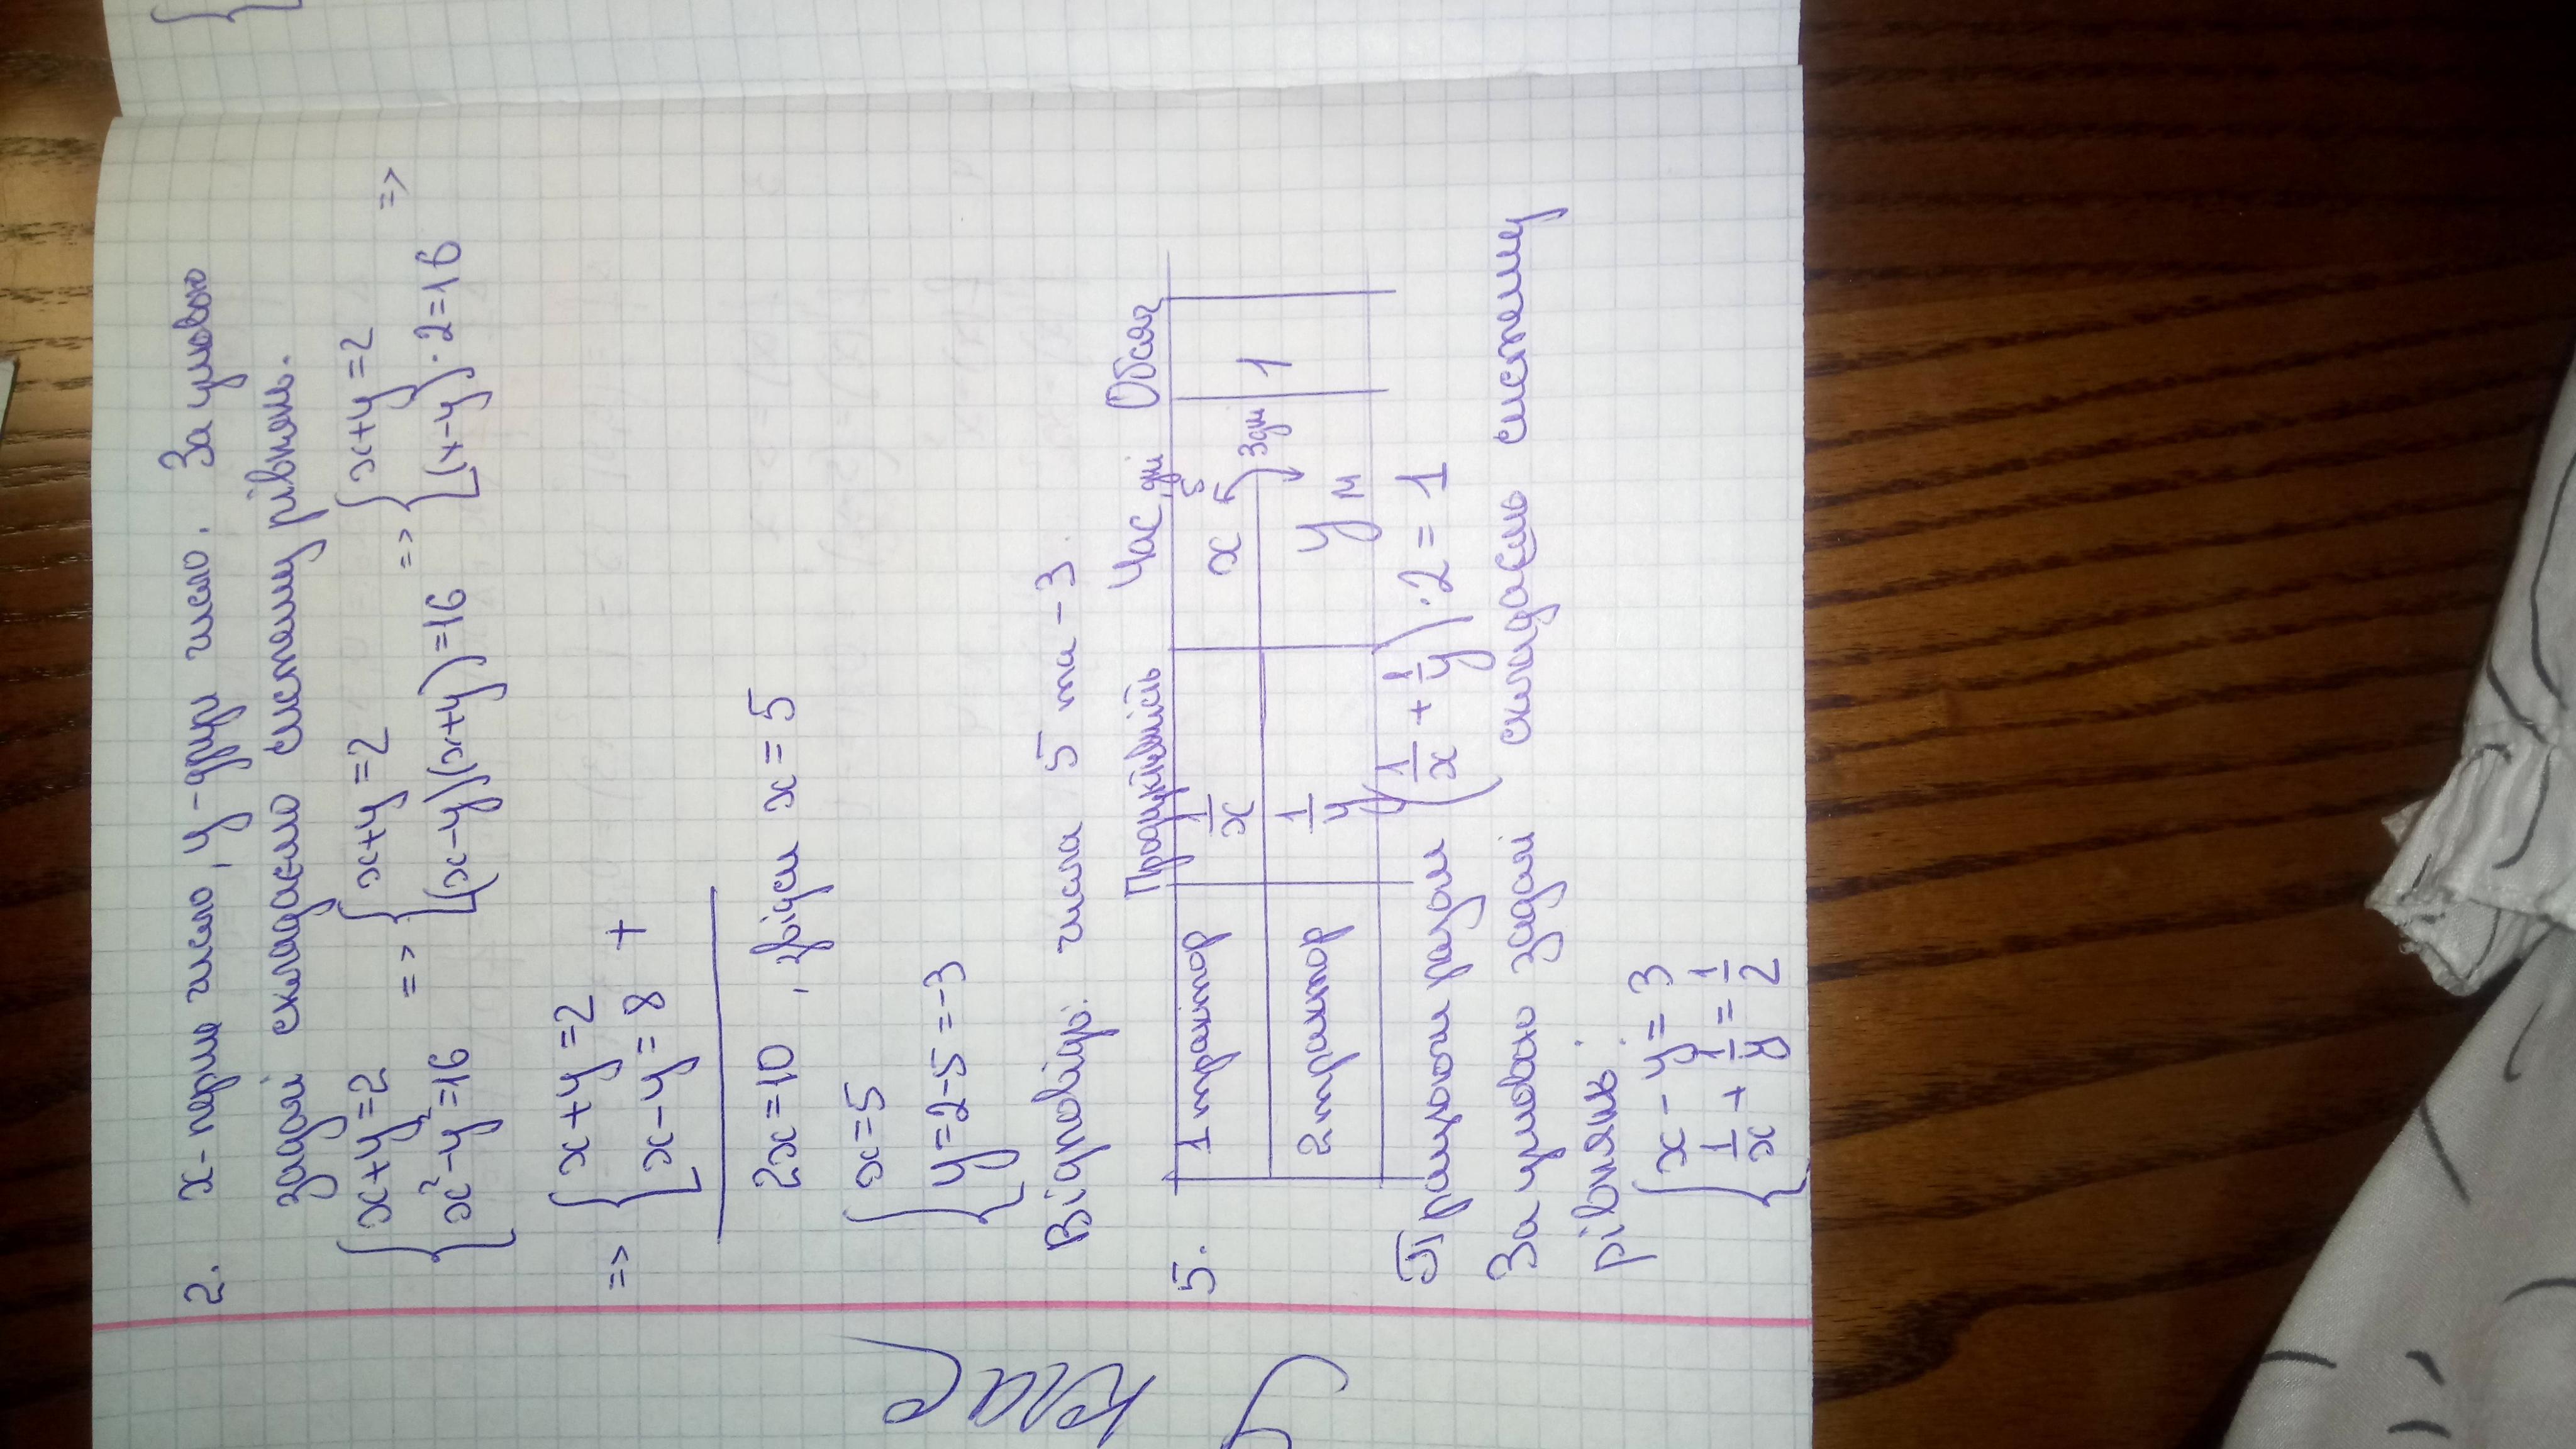 2. x - перше число, y - друге число. За умовою
задачі складаємо систему рівнянь.
{ x+y=2 => { x+y=2 => { x+y=2 =>
{ x²-y²=16 { (x-y)(x+y)=16 { (x-y)·2=16
=> { x+y=2
{ x-y=8 +
2x=10, звідси x=5
{ x=5
{ y=2-5=-3
Відповідь: числа 5 та -3.
5. Продуктивність Час, дні Обсяг
1 трактор 1/x x Б 1
3 дні
2 трактор 1/y y М
Працюючи разом (1/x + 1/y)·2=1
За умовою задачі складаємо систему
рівнянь:
{ x-y=3
{ 1/x + 1/y = 1/2
9 клас